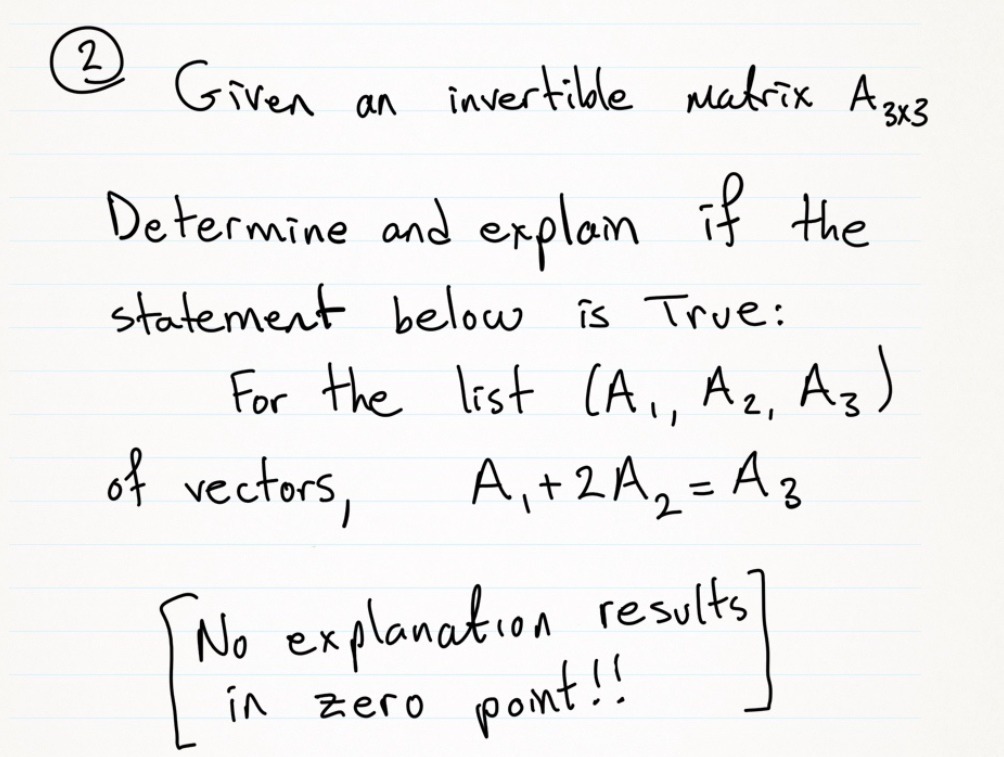 ② Given an invertible matrix A₃ₓ₃
Determine and explain if the
statement below is True:
For the list (A₁, A₂, A₃)
of vectors, A₁+2A₂=A₃
[No explanation results
in zero point!!]